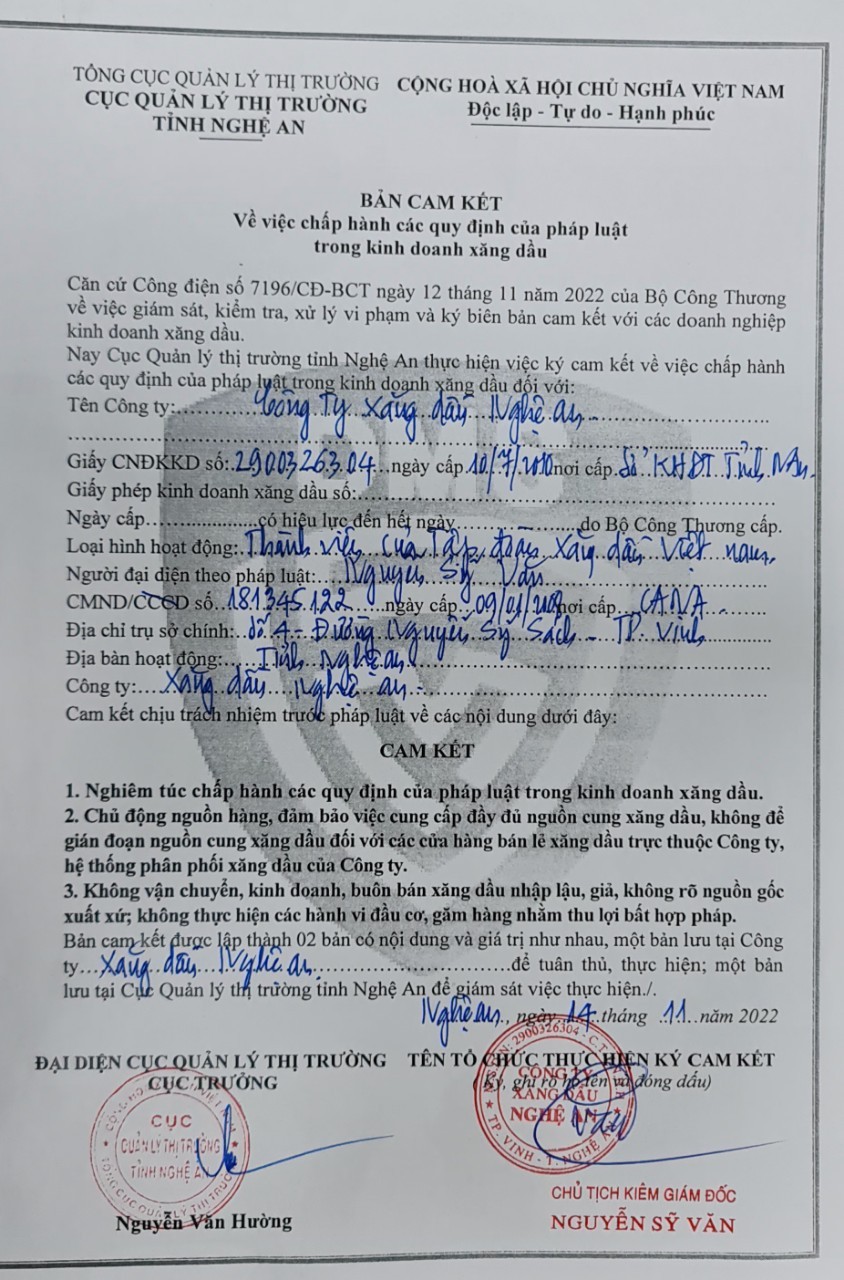 TỔNG CỤC QUẢN LÝ THỊ TRƯỜNG
CỤC QUẢN LÝ THỊ TRƯỜNG
TỈNH NGHỆ AN
CỘNG HOÀ XÃ HỘI CHỦ NGHĨA VIỆT NAM
Độc lập - Tự do - Hạnh phúc
BẢN CAM KẾT
Về việc chấp hành các quy định của pháp luật
trong kinh doanh xăng dầu
Căn cứ Công điện số 7196/CĐ-BCT ngày 12 tháng 11 năm 2022 của Bộ Công Thương
về việc giám sát, kiểm tra, xử lý vi phạm và ký biên bản cam kết với các doanh nghiệp
kinh doanh xăng dầu.
Nay Cục Quản lý thị trường tỉnh Nghệ An thực hiện việc ký cam kết về việc chấp hành
các quy định của pháp luật trong kinh doanh xăng dầu đối với:
Tên Công ty: Công Ty Xăng dầu Nghệ an
Giấy CNĐKKD số: 2900326304 ngày cấp 10/7/2010 nơi cấp Sở KHĐT Tỉnh N.An.
Giấy phép kinh doanh xăng dầu số:
Ngày cấp có hiệu lực đến hết ngày do Bộ Công Thương cấp.
Loại hình hoạt động: Thành viên của Tập đoàn Xăng dầu Việt nam
Người đại diện theo pháp luật: Nguyễn Sỹ Văn
CMND/CCCD số 181345122 ngày cấp 09/01/ nơi cấp CANA
Địa chỉ trụ sở chính: Số 4 - Đường Nguyễn Sỹ Sách - TP. Vinh
Địa bàn hoạt động: Tỉnh Nghệ an
Công ty: Xăng dầu Nghệ an
Cam kết chịu trách nhiệm trước pháp luật về các nội dung dưới đây:
CAM KẾT
1. Nghiêm túc chấp hành các quy định của pháp luật trong kinh doanh xăng dầu.
2. Chủ động nguồn hàng, đảm bảo việc cung cấp đầy đủ nguồn cung xăng dầu, không để
gián đoạn nguồn cung xăng dầu đối với các cửa hàng bán lẻ xăng dầu trực thuộc Công ty,
hệ thống phân phối xăng dầu của Công ty.
3. Không vận chuyển, kinh doanh, buôn bán xăng dầu nhập lậu, giả, không rõ nguồn gốc
xuất xứ; không thực hiện các hành vi đầu cơ, găm hàng nhằm thu lợi bất hợp pháp.
Bản cam kết được lập thành 02 bản có nội dung và giá trị như nhau, một bản lưu tại Công
ty Xăng dầu Nghệ an để tuân thủ, thực hiện; một bản
lưu tại Cục Quản lý thị trường tỉnh Nghệ An để giám sát việc thực hiện./.
Nghệ an, ngày 14 tháng 11 năm 2022
ĐẠI DIỆN CỤC QUẢN LÝ THỊ TRƯỜNG
CỤC TRƯỞNG
CỤC
QUẢN LÝ THỊ TRƯỜNG
TỈNH NGHỆ AN
Nguyễn Văn Hường
TÊN TỔ CHỨC THỰC HIỆN KÝ CAM KẾT
(Ký, ghi rõ họ tên và đóng dấu)
CÔNG TY
XĂNG DẦU
NGHỆ AN
TP. VINH - T. NGHỆ AN
Văn
CHỦ TỊCH KIÊM GIÁM ĐỐC
NGUYỄN SỸ VĂN